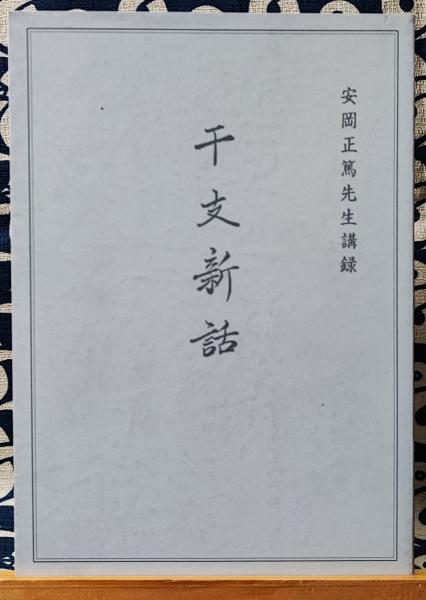 安岡正篤先生講録
干支新話